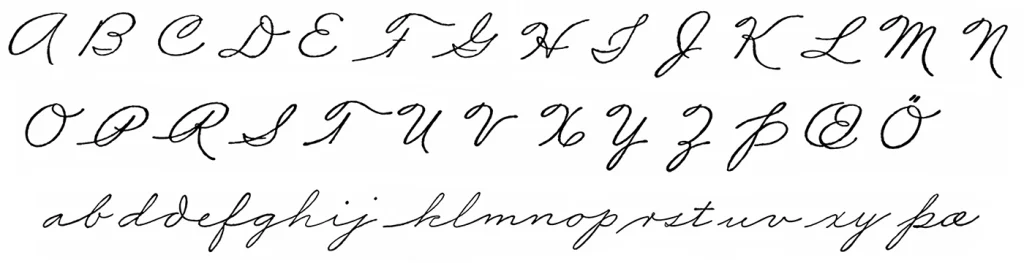 A B C D E F G H I J K L M N
O P R S T U V X Y Z Þ Æ Ö
ab dðefghij klmnop rst uv xy þæ